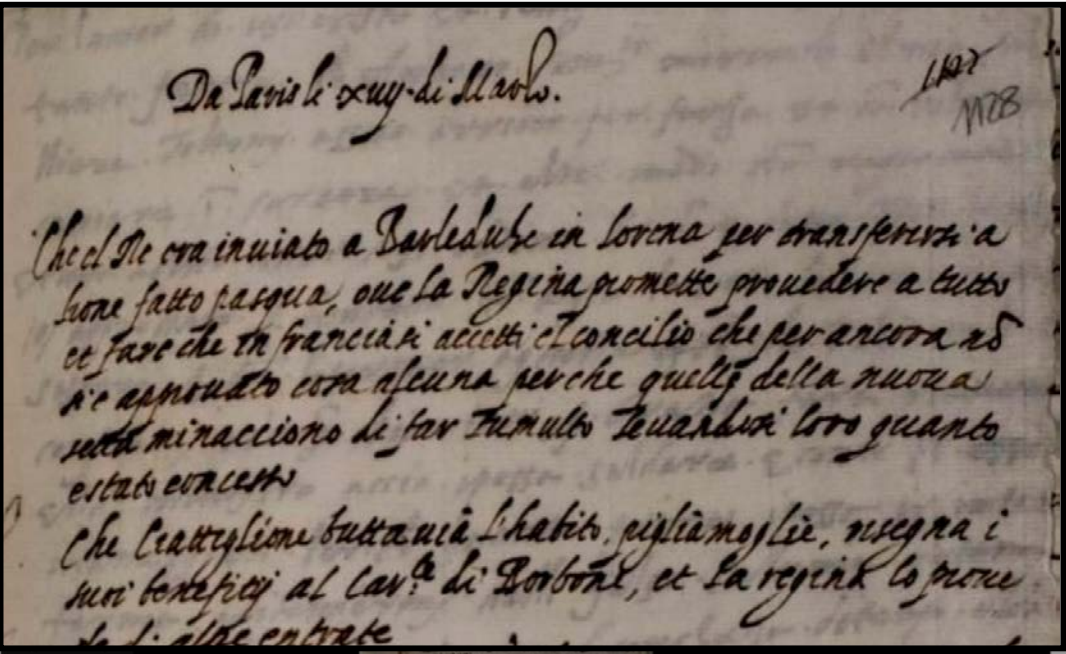 Da Paris li xuij. di Marzo.
1127
1128
Che el Re era inuiato a Barleduhc in Lorena per transferirsi a
lione fatto pasqua, oue la Regina promette prouedere a tutto
et fare che in francia si accetti el concilio che per ancora nō
si e approuato cosa alcuna perche quelli della nuoua
setta minacciono di far tumulto leuandosi loro quanto
e stato concesso
Che Ciattiglione butta uia l'habito, piglia moglie, risegna i
suoi beneficij al Car.le di Borbone, et la regina lo proue
de di altre entrate